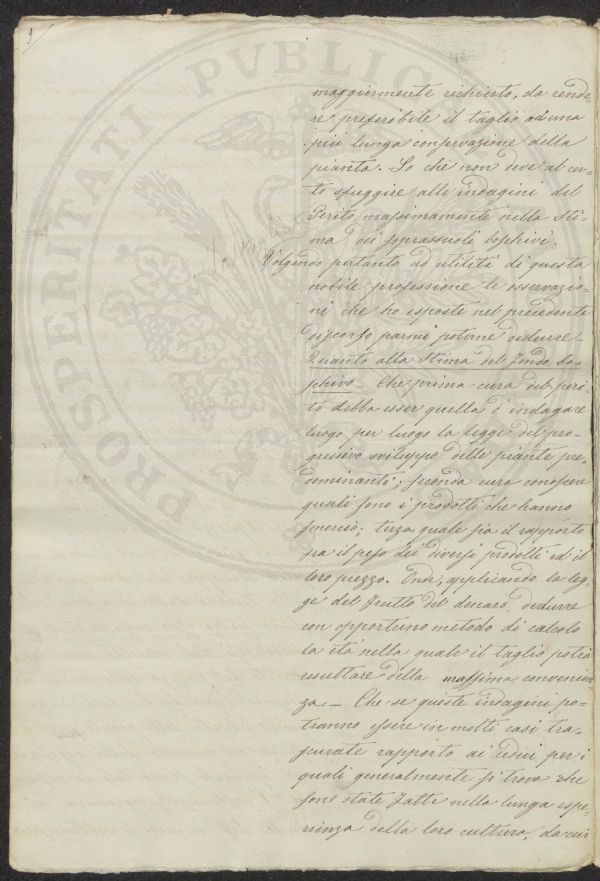 9
PROSPERITATI PVBLIC
maggiormente richiesto, da rende-
re preferibile il taglio ad una
più lunga conservazione della
pianta. Lo che non deve al cer-
to sfuggire alle indagini del
Perito, massimamente nella sti-
ma dei soprassuoli boschivi.
Volgendo pertanto ad utilità di questa
nobile professione le osservazio-
ni che ho esposte nel precedente
discorso parmi poterne dedurre –
Quanto alla Stima del fondo bo-
schivo – Che prima cura del peri-
to debba esser quella d'indagare
luogo per luogo la legge del pro-
gressivo sviluppo delle piante pre-
dominanti; seconda cura conoscere
quali sono i prodotti che hanno
smercio; terza quale sia il rapporto
fra il peso dei diversi prodotti ed il
loro prezzo. Onde, applicando la leg-
ge del frutto del denaro, dedurre
con opportuno metodo di calcolo
la età nella quale il taglio potrà
resultare della massima convenien-
za. – Che se queste indagini po-
tranno essere in molti casi tra-
scurate rapporto ai cedui per i
quali generalmente si trova che
sono state fatte nella lunga espe-
rienza della loro cultura, da cui